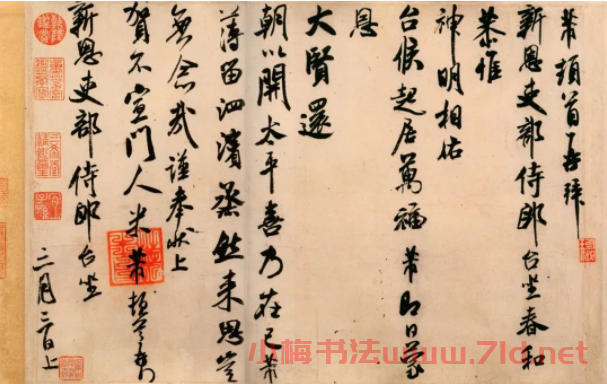 芾頓首再拜
新恩吏部侍郎台坐春和
恭惟
神明相佑
台候起居萬福芾即日蒙
恩
大賢還
朝以開太平喜乃在己芾
薄留泗濱烝然來思豈
無念哉謹奉狀上
賀不宣門人米芾頓首
新恩吏部侍郎台坐
三月三日上
小梅书法www.7ld.net